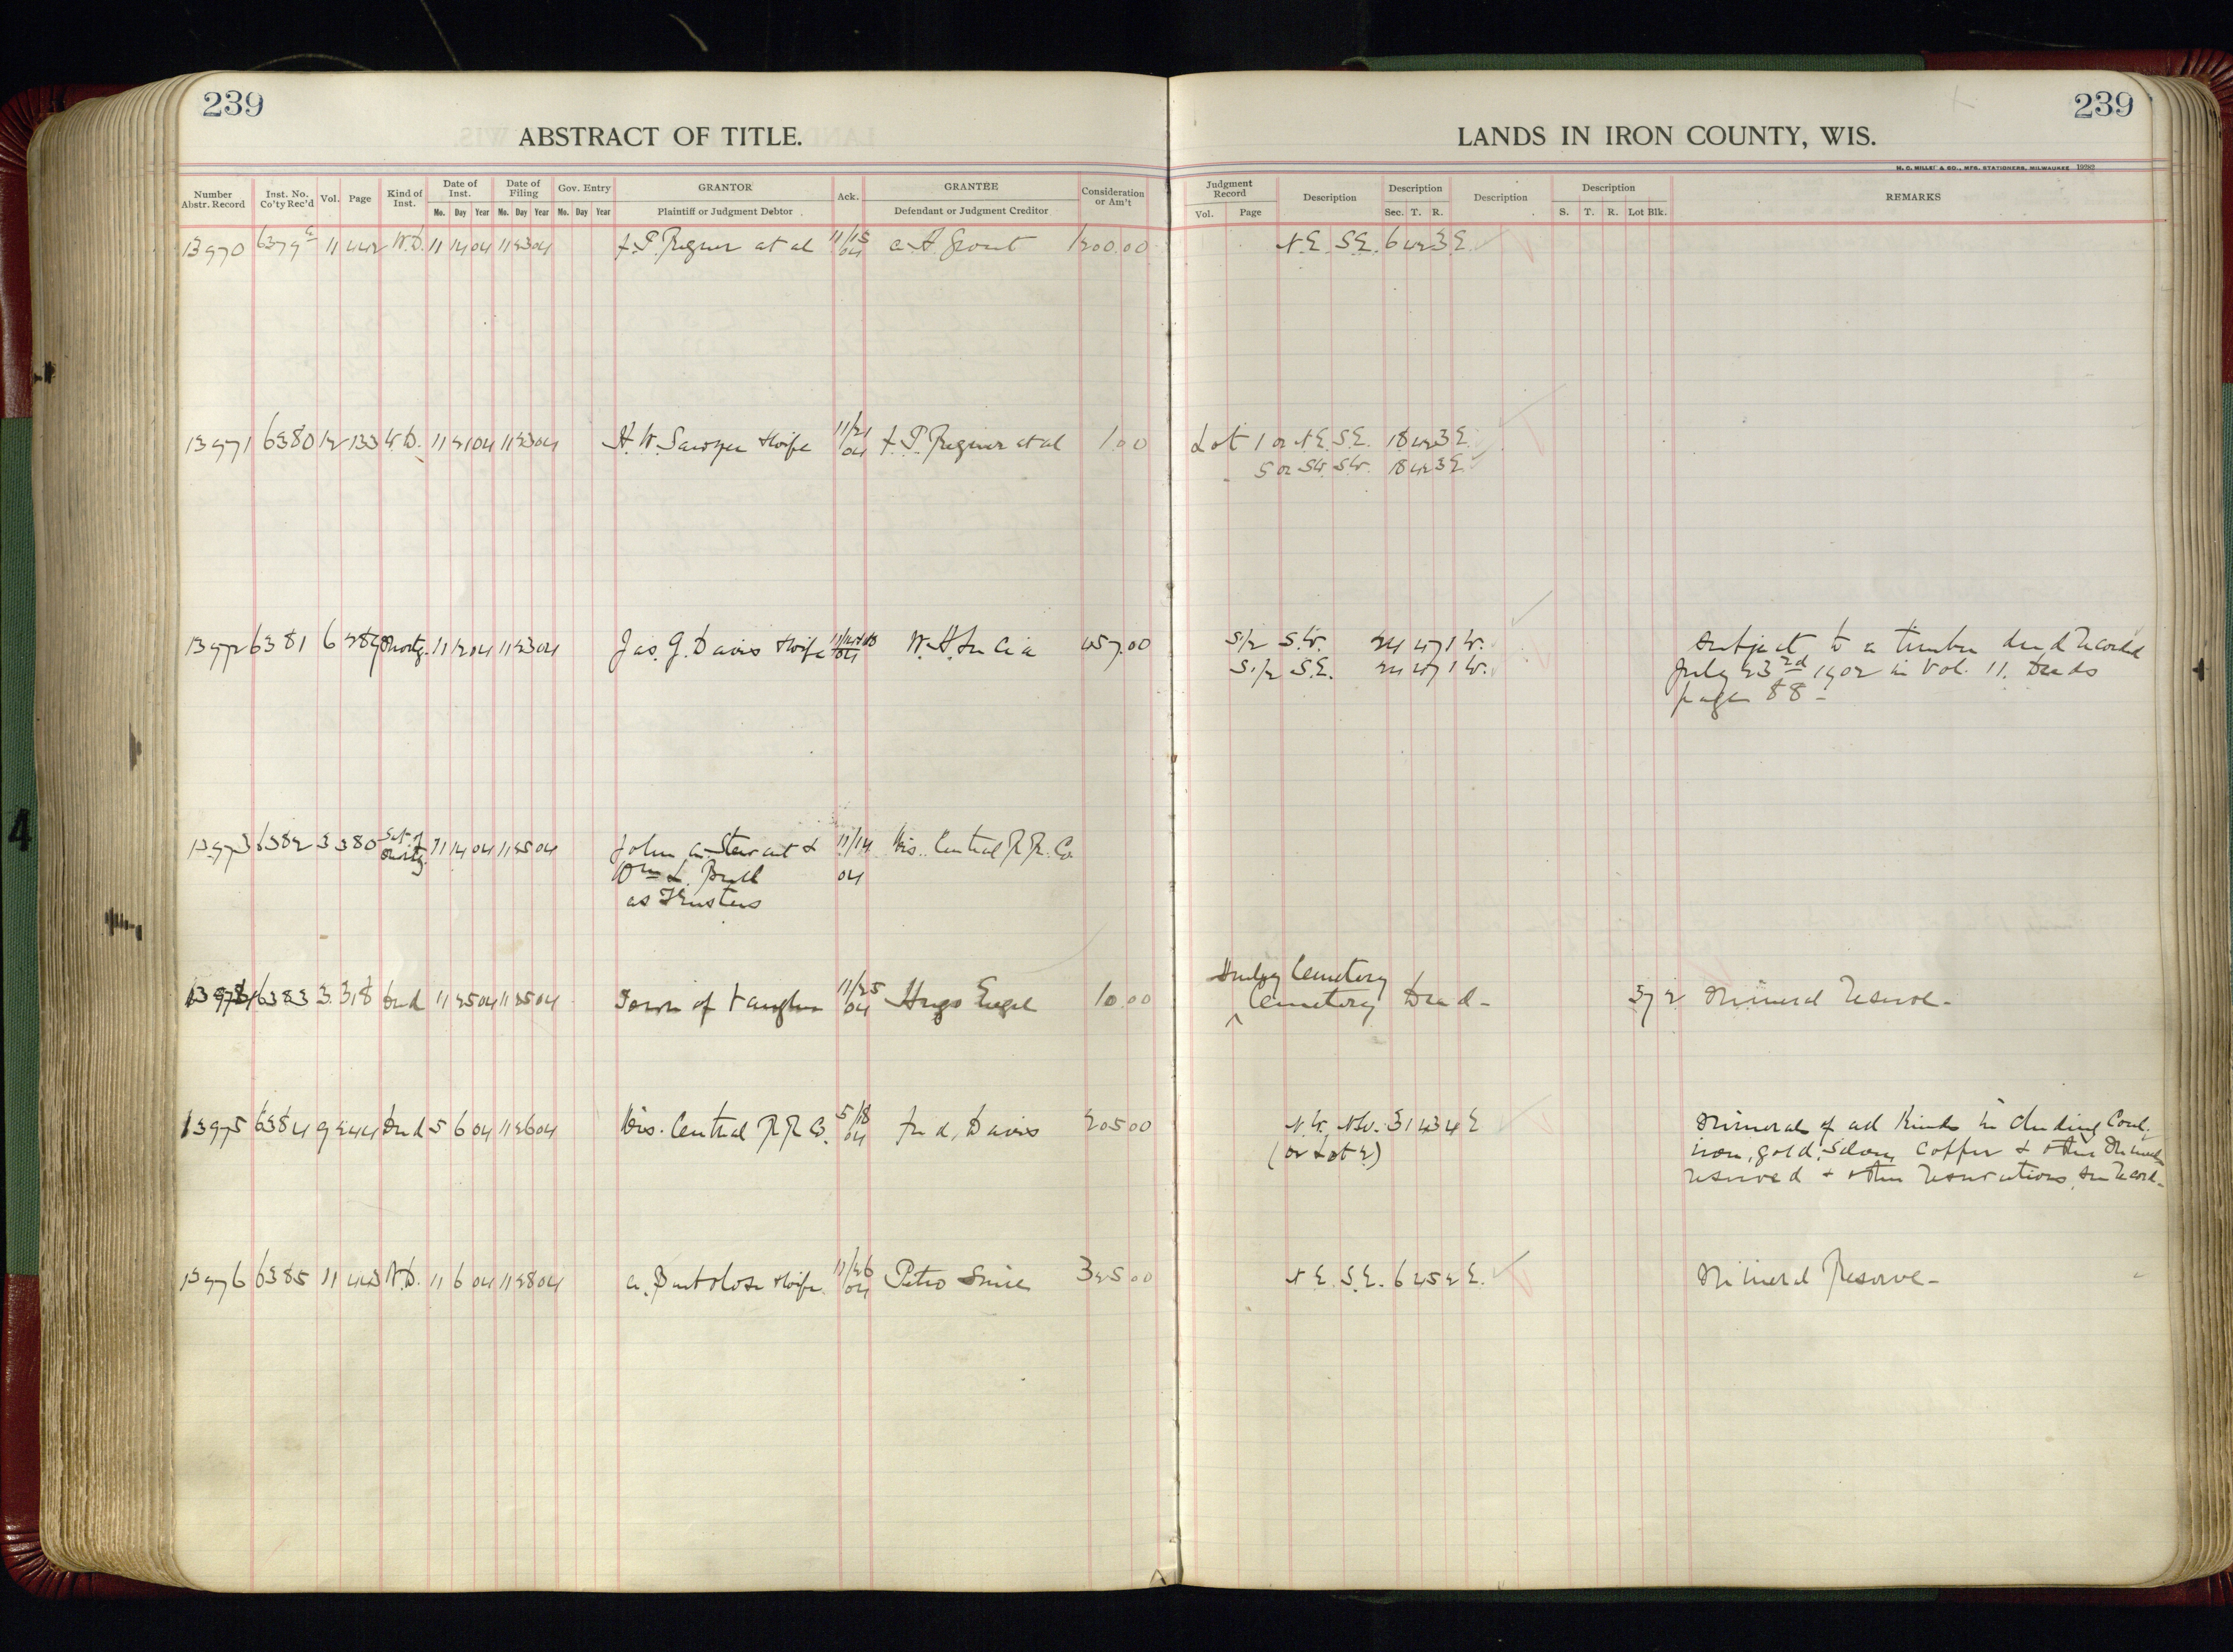 239
ABSTRACT OF TITLE.
Number Abstr. Record
Inst. No. Co'ty Rec'd
Vol.
Page
Kind of Inst.
Date of Inst.
Mo. Day Year
Date of Filing
Mo. Day Year
Gov. Entry
Mo. Day Year
GRANTOR
Plaintiff or Judgment Debtor
Ack.
GRANTEE
Defendant or Judgment Creditor
Consideration or Am't
239
LANDS IN IRON COUNTY, WIS.
H. C. MILLER & CO., MFG. STATIONERS, MILWAUKEE 19282
Judgment Record
Vol. Page
Description
Description
Sec. T. R.
Description
Description
S. T. R. Lot Blk.
REMARKS
13970 6379 11 442 W.D. 11 14 04 11 23 04 et al 11/15 04 1200.00 N.E. S.E. 6 42 3 E.
13971 6380 12 133 W.D. 11 21 04 11 23 04 H. W. Sawyer & wife 11/21 04 et al 1.00 Lot 1 or N.E. S.E. 18 42 3 E.
5 or S.W. S.W. 18 42 3 E.
13972 6381 6 289 Mortg. 11 12 04 11 23 04 Jas. G. Davis & wife 04 457.00 S 1/2 S.W. 24 47 1 W. Subject to a timber deed record
S. 1/2 S.E. 24 47 1 W. July 23rd 1902 in Vol. 11. Deeds
page 88 -
13973 6382 3 380 Sat. of Mortg. 11 14 04 11 25 04 John A. Stewart & 11/14 Wis. Central R.R. Co.
Wm L. Bull 04
as Trustees
13974 6383 3 318 Deed 11 25 04 11 25 04 Town of Vaughn 11/25 04 Hugo Engel 10.00 Hurley Cemetery
Cemetery Deed - 372 Mineral Reserve -
13975 6384 9 244 Deed 5 6 04 11 26 04 Wis. Central R.R. Co. 5/18 04 Fred. Davis 205 00 N.W. N.W. 31 43 4 E Minerals of all kinds including Coal,
(or Lot 2) iron, gold, silver, Copper & other Minerals
reserved & other reservations, see record -
13976 6385 11 443 W.D. 11 6 04 11 28 04 & wife 11/26 04 325 00 N.E. S.E. 6 45 2 E. Mineral Reserve -
4